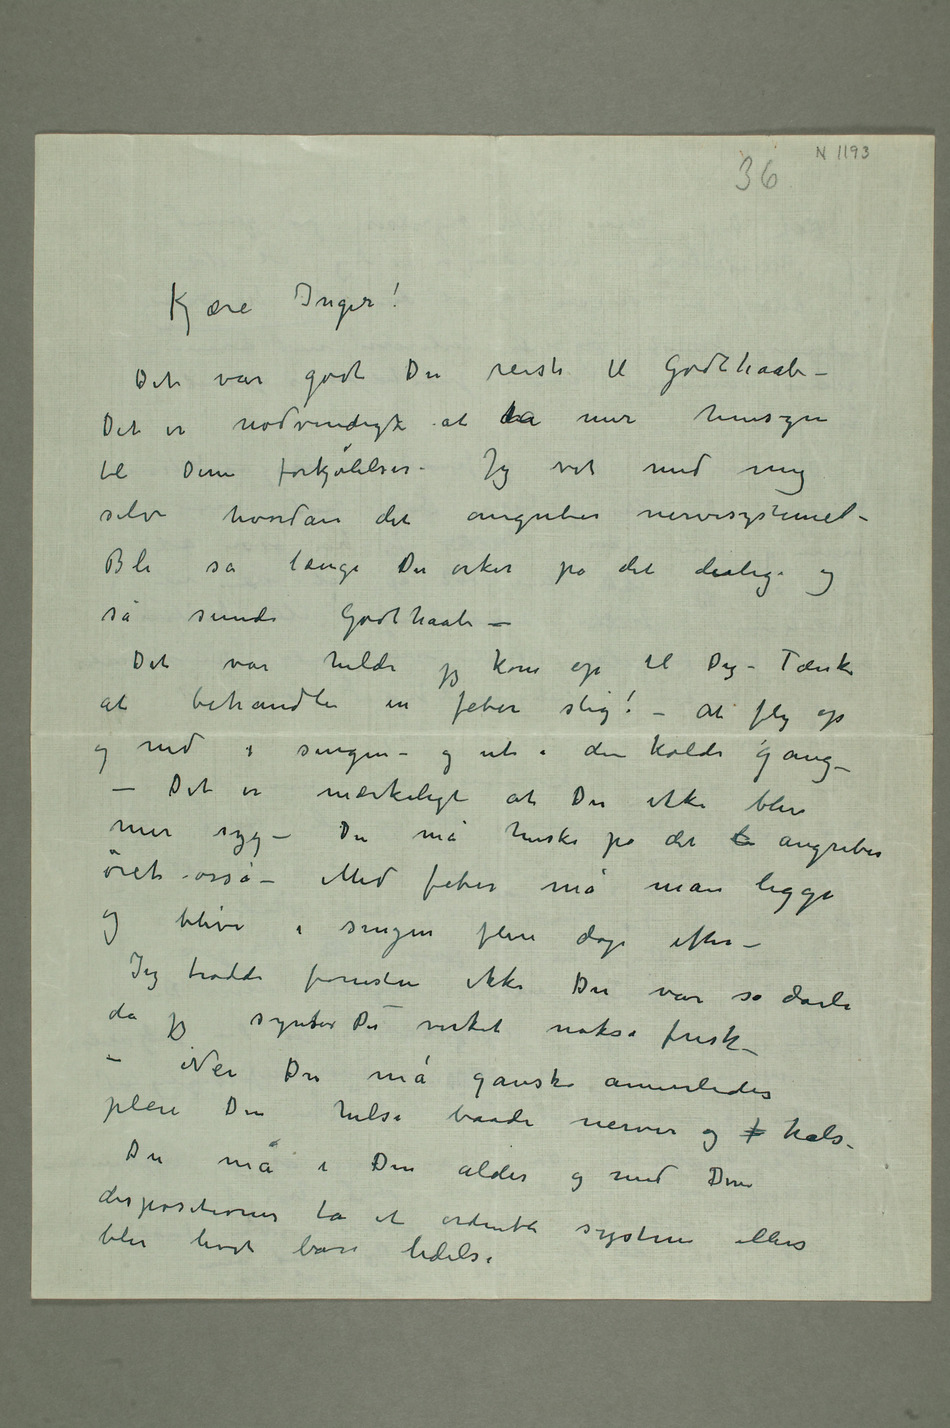 N 1193
36
Kjære Inger!
Det var godt Du reiste til Godthaab –
Det er nødvendigt at ta mer hensyn
til Dine forkjølelser – Jeg vet med mig
selv hvordan det angriber nervesystemet –
Bli så længe Du orker på det deilige og
så sunde Godthaab –
Det var heldi jeg kom op til Dig – Tænk
at behandle en feber slig! – At fly op
og ned i sengen – og ut i den kolde gang –
– Det er mærkeligt at Du ikke blev
mer syg – Du må huske på det angriber
øret osså – Med feber må man ligge
og blive i sengen flere dage efter –
Jeg trodde forresten ikke Du var så dårli
da jeg syntes Du virket nokså frisk –
– Nei Du må ganske annerledes
pleie Din helse baade nerver og hals –
Du må i Din alder og med Dine
dispositioner ta et ordentli system ellers
blir livet bare lidelse